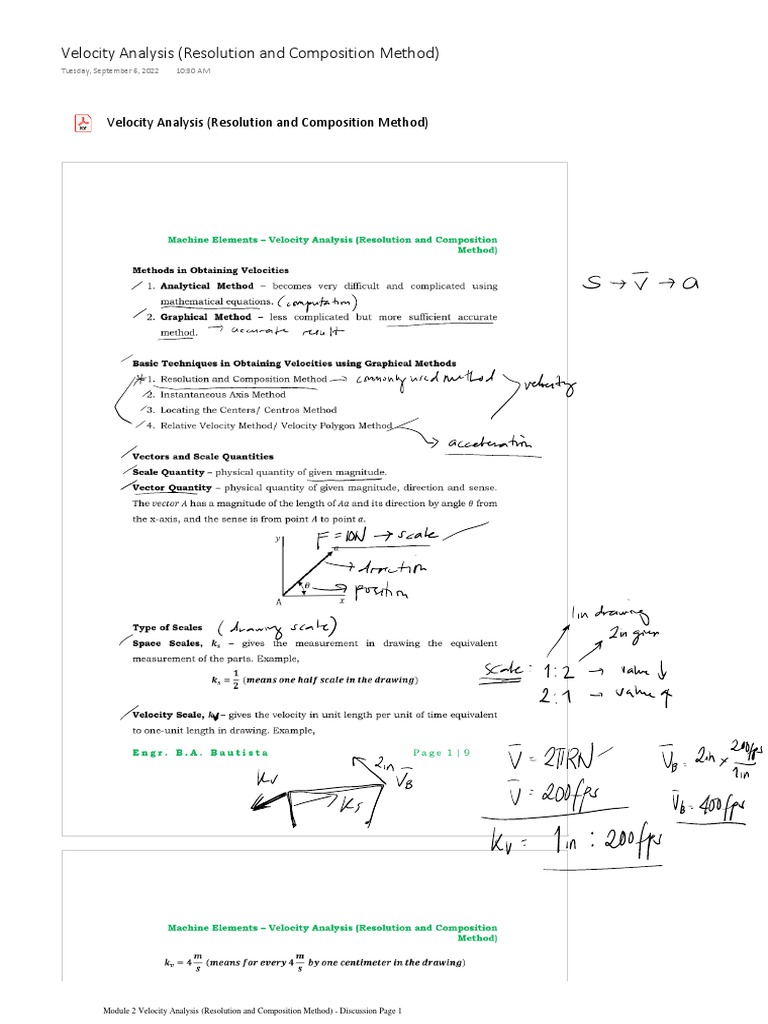 Velocity Analysis (Resolution and Composition Method)
Tuesday, September 6, 2022 10:30 AM
Velocity Analysis (Resolution and Composition Method)
Machine Elements – Velocity Analysis (Resolution and Composition
Method)
Methods in Obtaining Velocities
1. Analytical Method – becomes very difficult and complicated using
mathematical equations. (computation)
2. Graphical Method – less complicated but more sufficient accurate
method. → accurate result
S → V̅ → a
Basic Techniques in Obtaining Velocities using Graphical Methods
*1. Resolution and Composition Method → commonly used method
velocity
2. Instantaneous Axis Method
3. Locating the Centers/ Centros Method
4. Relative Velocity Method/ Velocity Polygon Method
→ acceleration
Vectors and Scale Quantities
Scale Quantity – physical quantity of given magnitude.
Vector Quantity – physical quantity of given magnitude, direction and sense.
The vector A has a magnitude of the length of Aa and its direction by angle θ from
the x-axis, and the sense is from point A to point a.
F = 10N → scale
y
a
→ direction
θ → position
A x
Type of Scales (drawing scale)
Space Scales, kₛ – gives the measurement in drawing the equivalent
measurement of the parts. Example,
kₛ = 1/2 (means one half scale in the drawing)
1in drawing
2in given
scale: 1:2 → value ↓
2:1 → value ↑
Velocity Scale, kᵥ – gives the velocity in unit length per unit of time equivalent
to one-unit length in drawing. Example,
Engr. B.A. Bautista Page 1 | 9
Kv
2in
V̅B
Ks
V̅ = 2πRN
V̅ = 200fps
Kv = 1in : 200fps
V̅B = 2in x 200fps/1in
V̅B = 400fps
Machine Elements – Velocity Analysis (Resolution and Composition
Method)
kᵥ = 4 m/s (means for every 4 m/s by one centimeter in the drawing)
Module 2 Velocity Analysis (Resolution and Composition Method) - Discussion Page 1